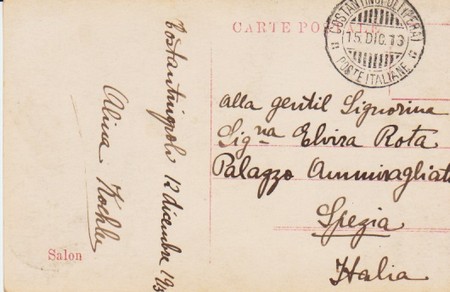 CARTE POSTALE
COSTANTINOPOLI (PERA)
15.DIC.13
POSTE ITALIANE
Alla gentil Signorina
Sig.na Elvira Rota
Palazzo Ammiragliato
Spezia
Italia
Costantinopoli 12 dicembre 1913
Alina
Salon